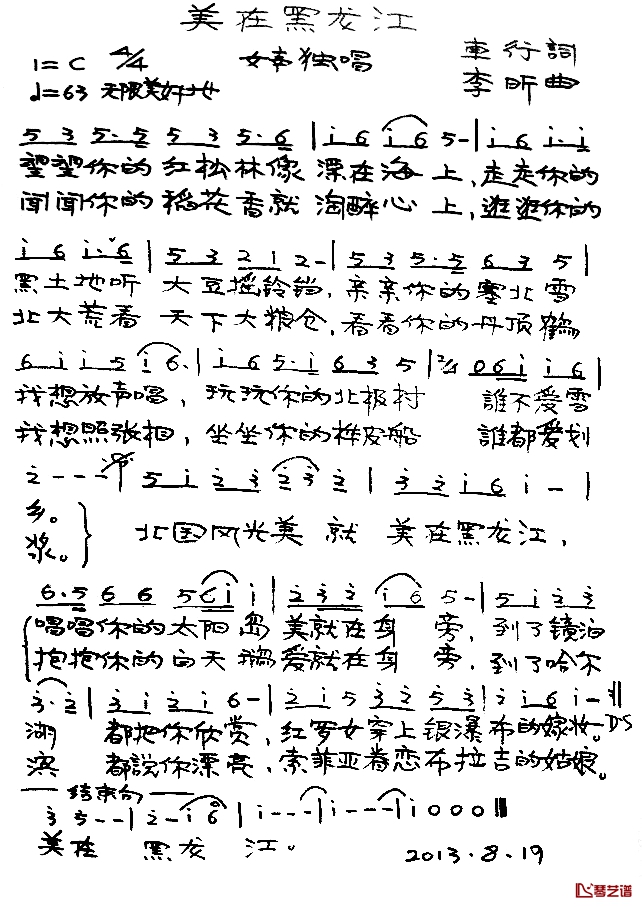 美在黑龙江
1=C 4/4 女声独唱 車行詞
♩=63 无限美好地 李昕曲
5 3 5·5 5 3 5·6 | i 6 i 6 5 - | i 6 i·i
望望你的红松林像漂在海上,走走你的
闻闻你的稻花香就淘醉心上,逛逛你的
i 6 i·6 | 5 3 2 1 2 - | 5 3 5·5 6 3 5 |
黑土地听大豆摇铃铛,亲亲你的塞北雪
北大荒看天下大粮仓,看看你的丹顶鹤
6 i i 5 i 6· | i 6 5·i 6 3 5 | 2/4 0 6 i i 6 |
我想放声唱,玩玩你的北极村 誰不爱雪
我想照张相,坐坐你的桦皮船 誰都爱划
2 - - - | 5 i 2 3 2 3 2 | 3 2 i 6 i - |
乡。
北国风光美就美在黑龙江,
浆。
6·5 6 6 5 6 i i | 2 3 2 i 6 5 - | 5 i 2 3
唱唱你的太阳岛美就在身旁,到了镜泊
抱抱你的白天鹅爱就在身旁,到了哈尔
3·2 | 3 i 2 i 6 - | 2 i 5 3 2 5 3 | 2 i 6 i - :|| DS
湖都把你欣赏,红罗女穿上银瀑布的嫁妆。
滨都説你漂亮,索菲亚眷恋布拉吉的姑娘。
结束句
3 5 - - | 2 - i 6 | i - - - | i - - - | i 0 0 0 ||
美在黑龙江。
2013.8.19
琴艺谱